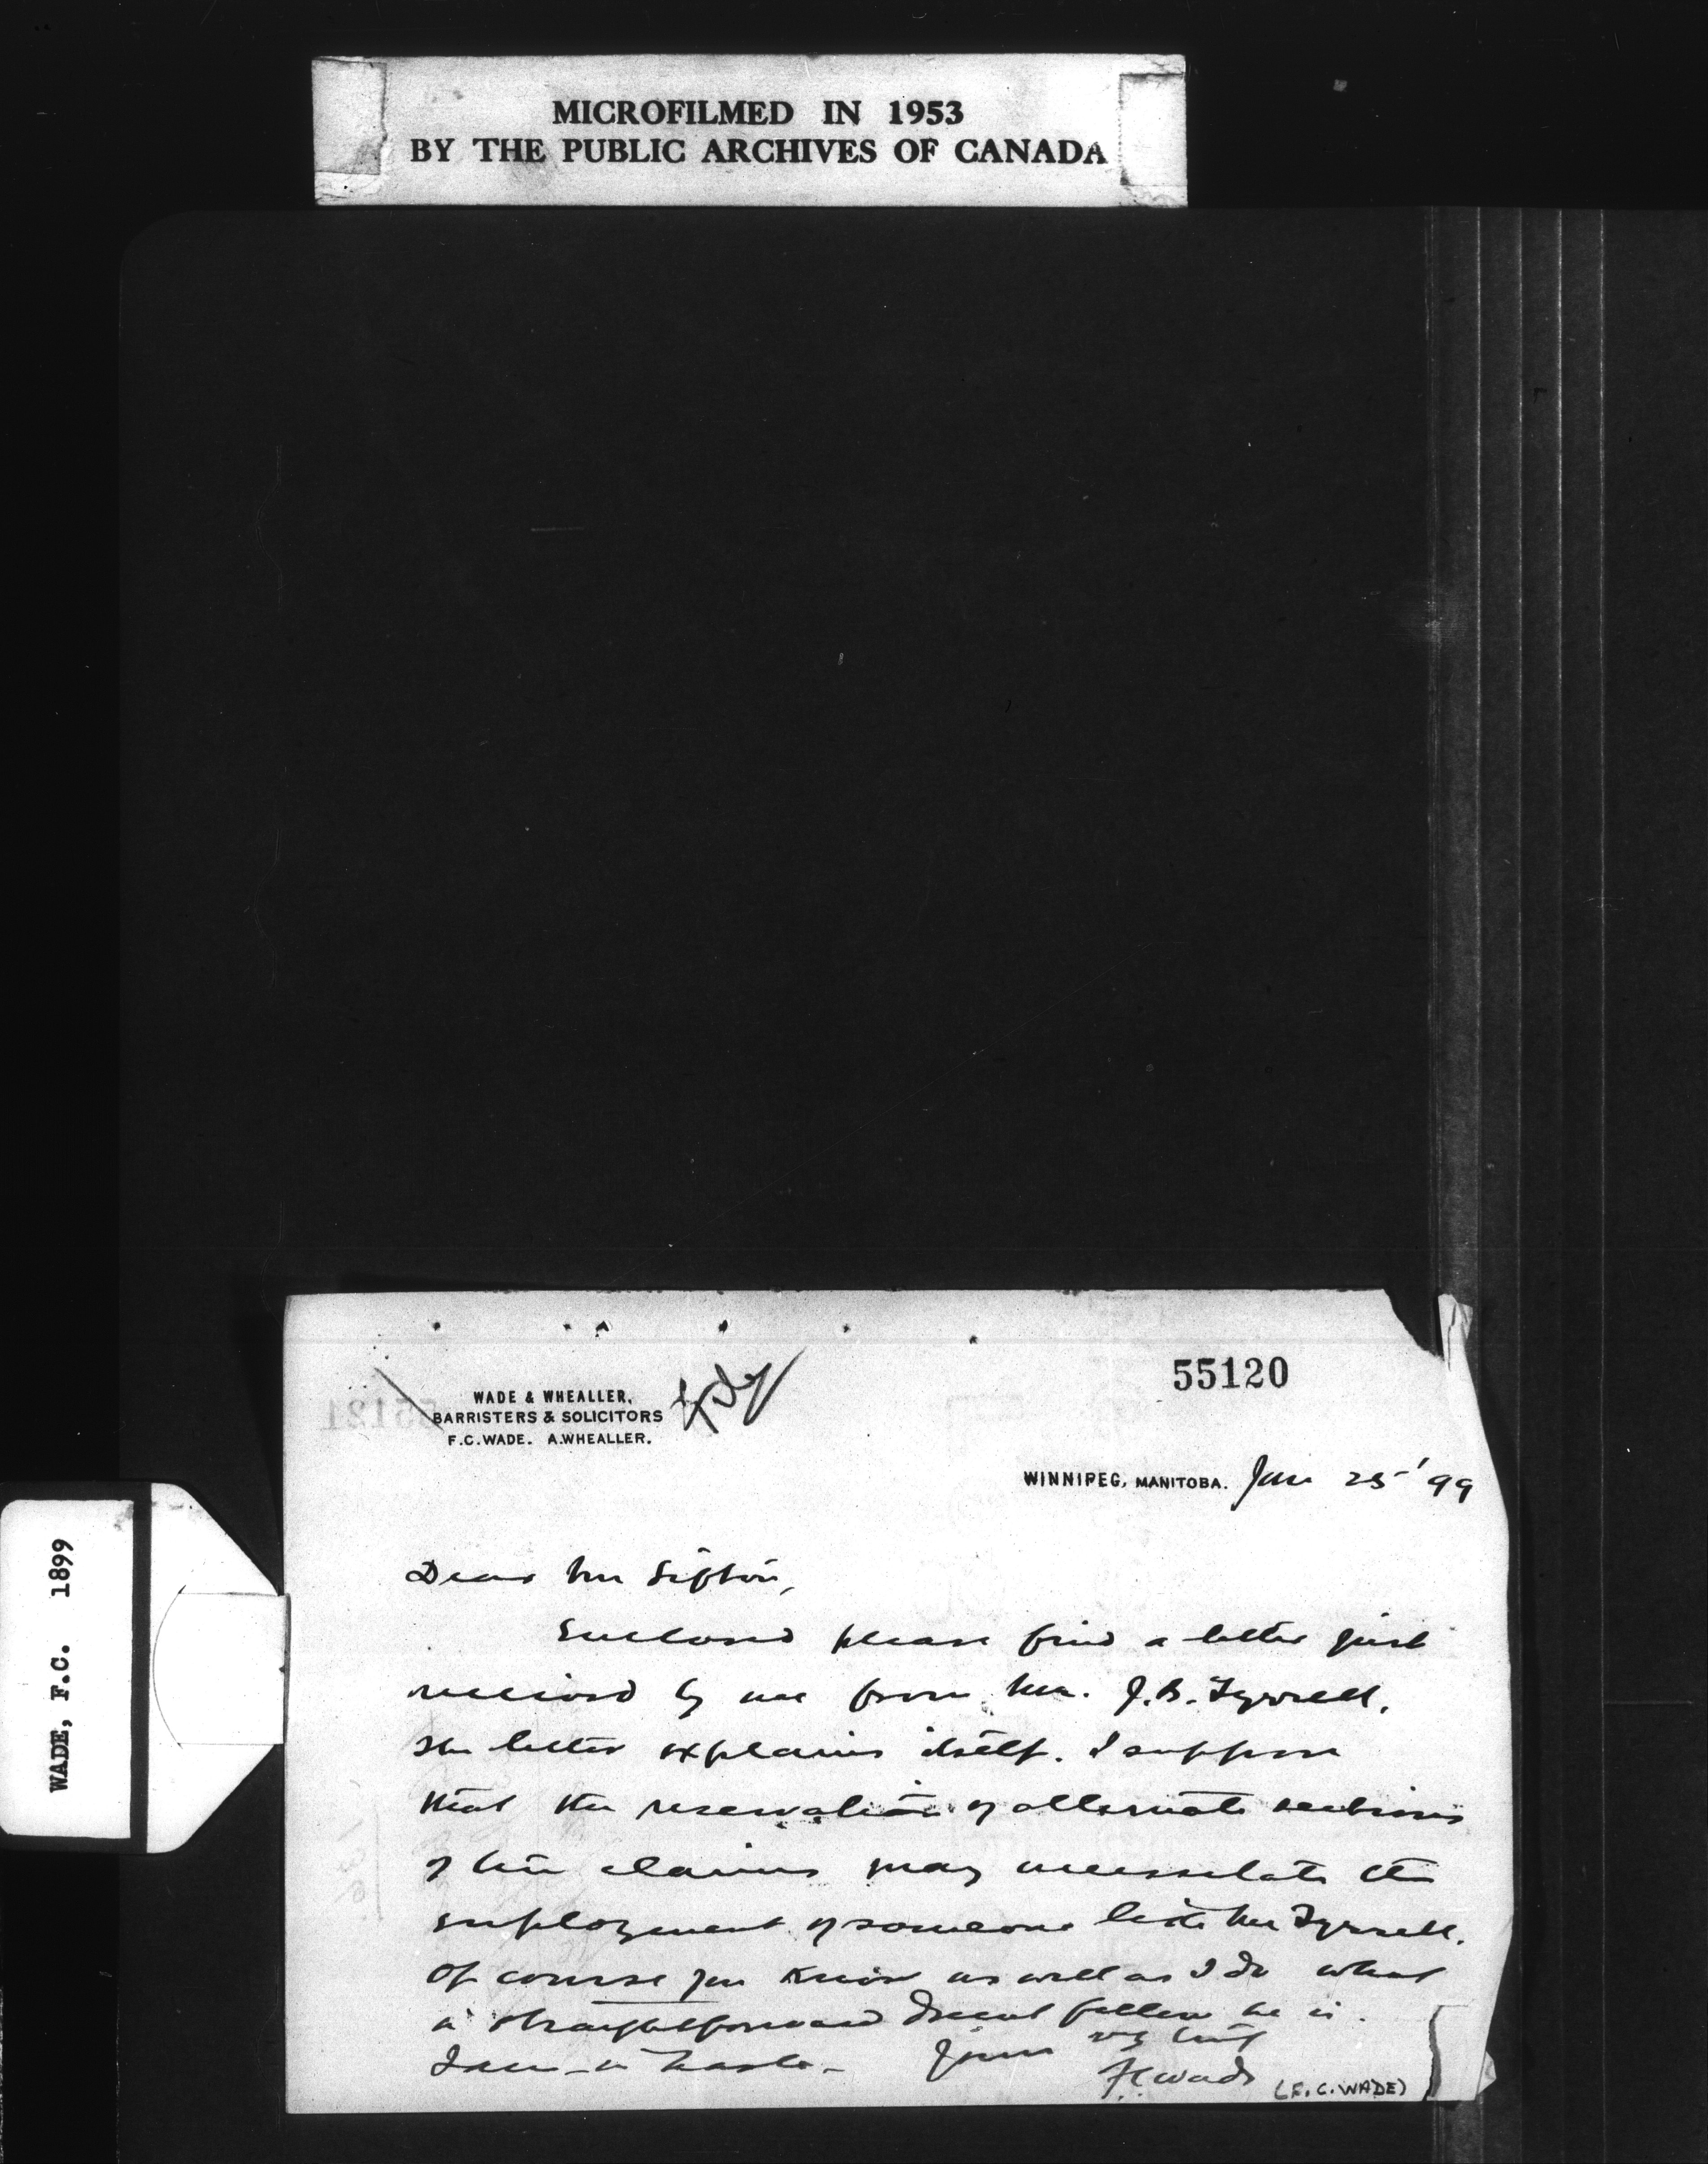 MICROFILMED IN 1953
BY THE PUBLIC ARCHIVES OF CANADA
55120
WADE & WHEALLER,
BARRISTERS & SOLICITORS
F.C. WADE. A. WHEALLER.
55121
WINNIPEG, MANITOBA. Jan 25 '99
WADE, F.C. 1899
Dear Mr Sifton,
Enclosed please find a letter just
received by me from Mr. J.B. Tyrrell.
The letter explains itself. I suppose
that the reservation of alternate sections
of claims may necessitate the
employment of someone like Mr Tyrrell.
Of course you know as well as I do what
a straightforward decent fellow he is.
I am in haste - Yours
F C Wade
(F. C. WADE)